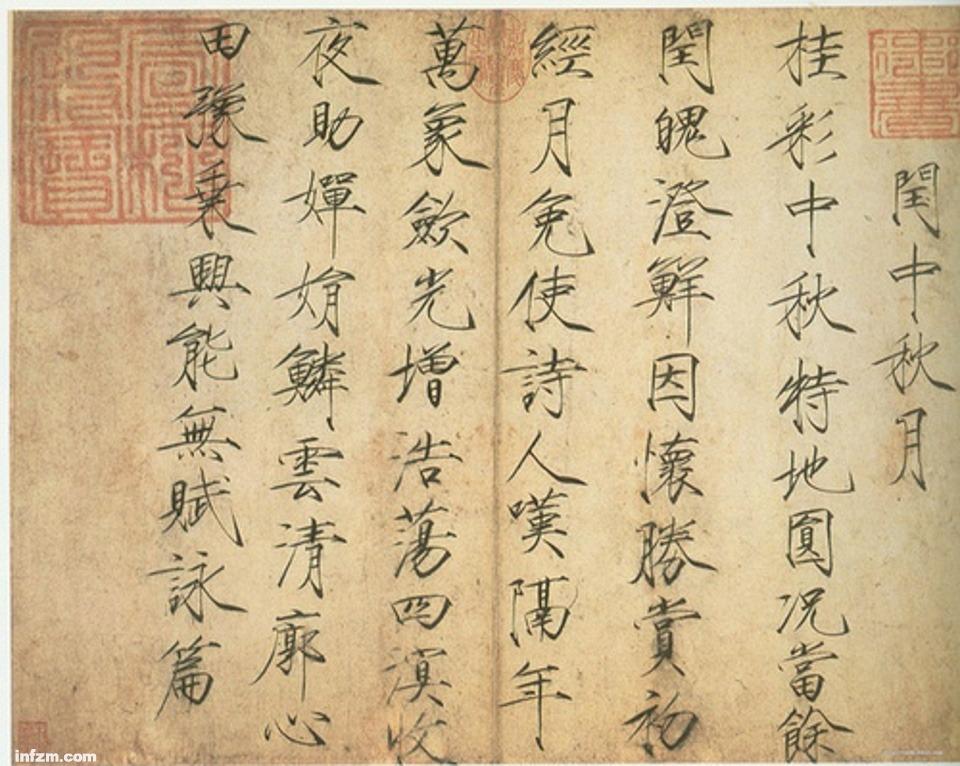 閏中秋月
桂彩中秋特地圓况當餘
閏魄澄鮮因懷勝賞初
經月免使詩人嘆隔年
萬象斂光增浩蕩四溟收
夜助嬋娟鱗雲清廓心
田豫乗興能無賦詠篇
infzm.com